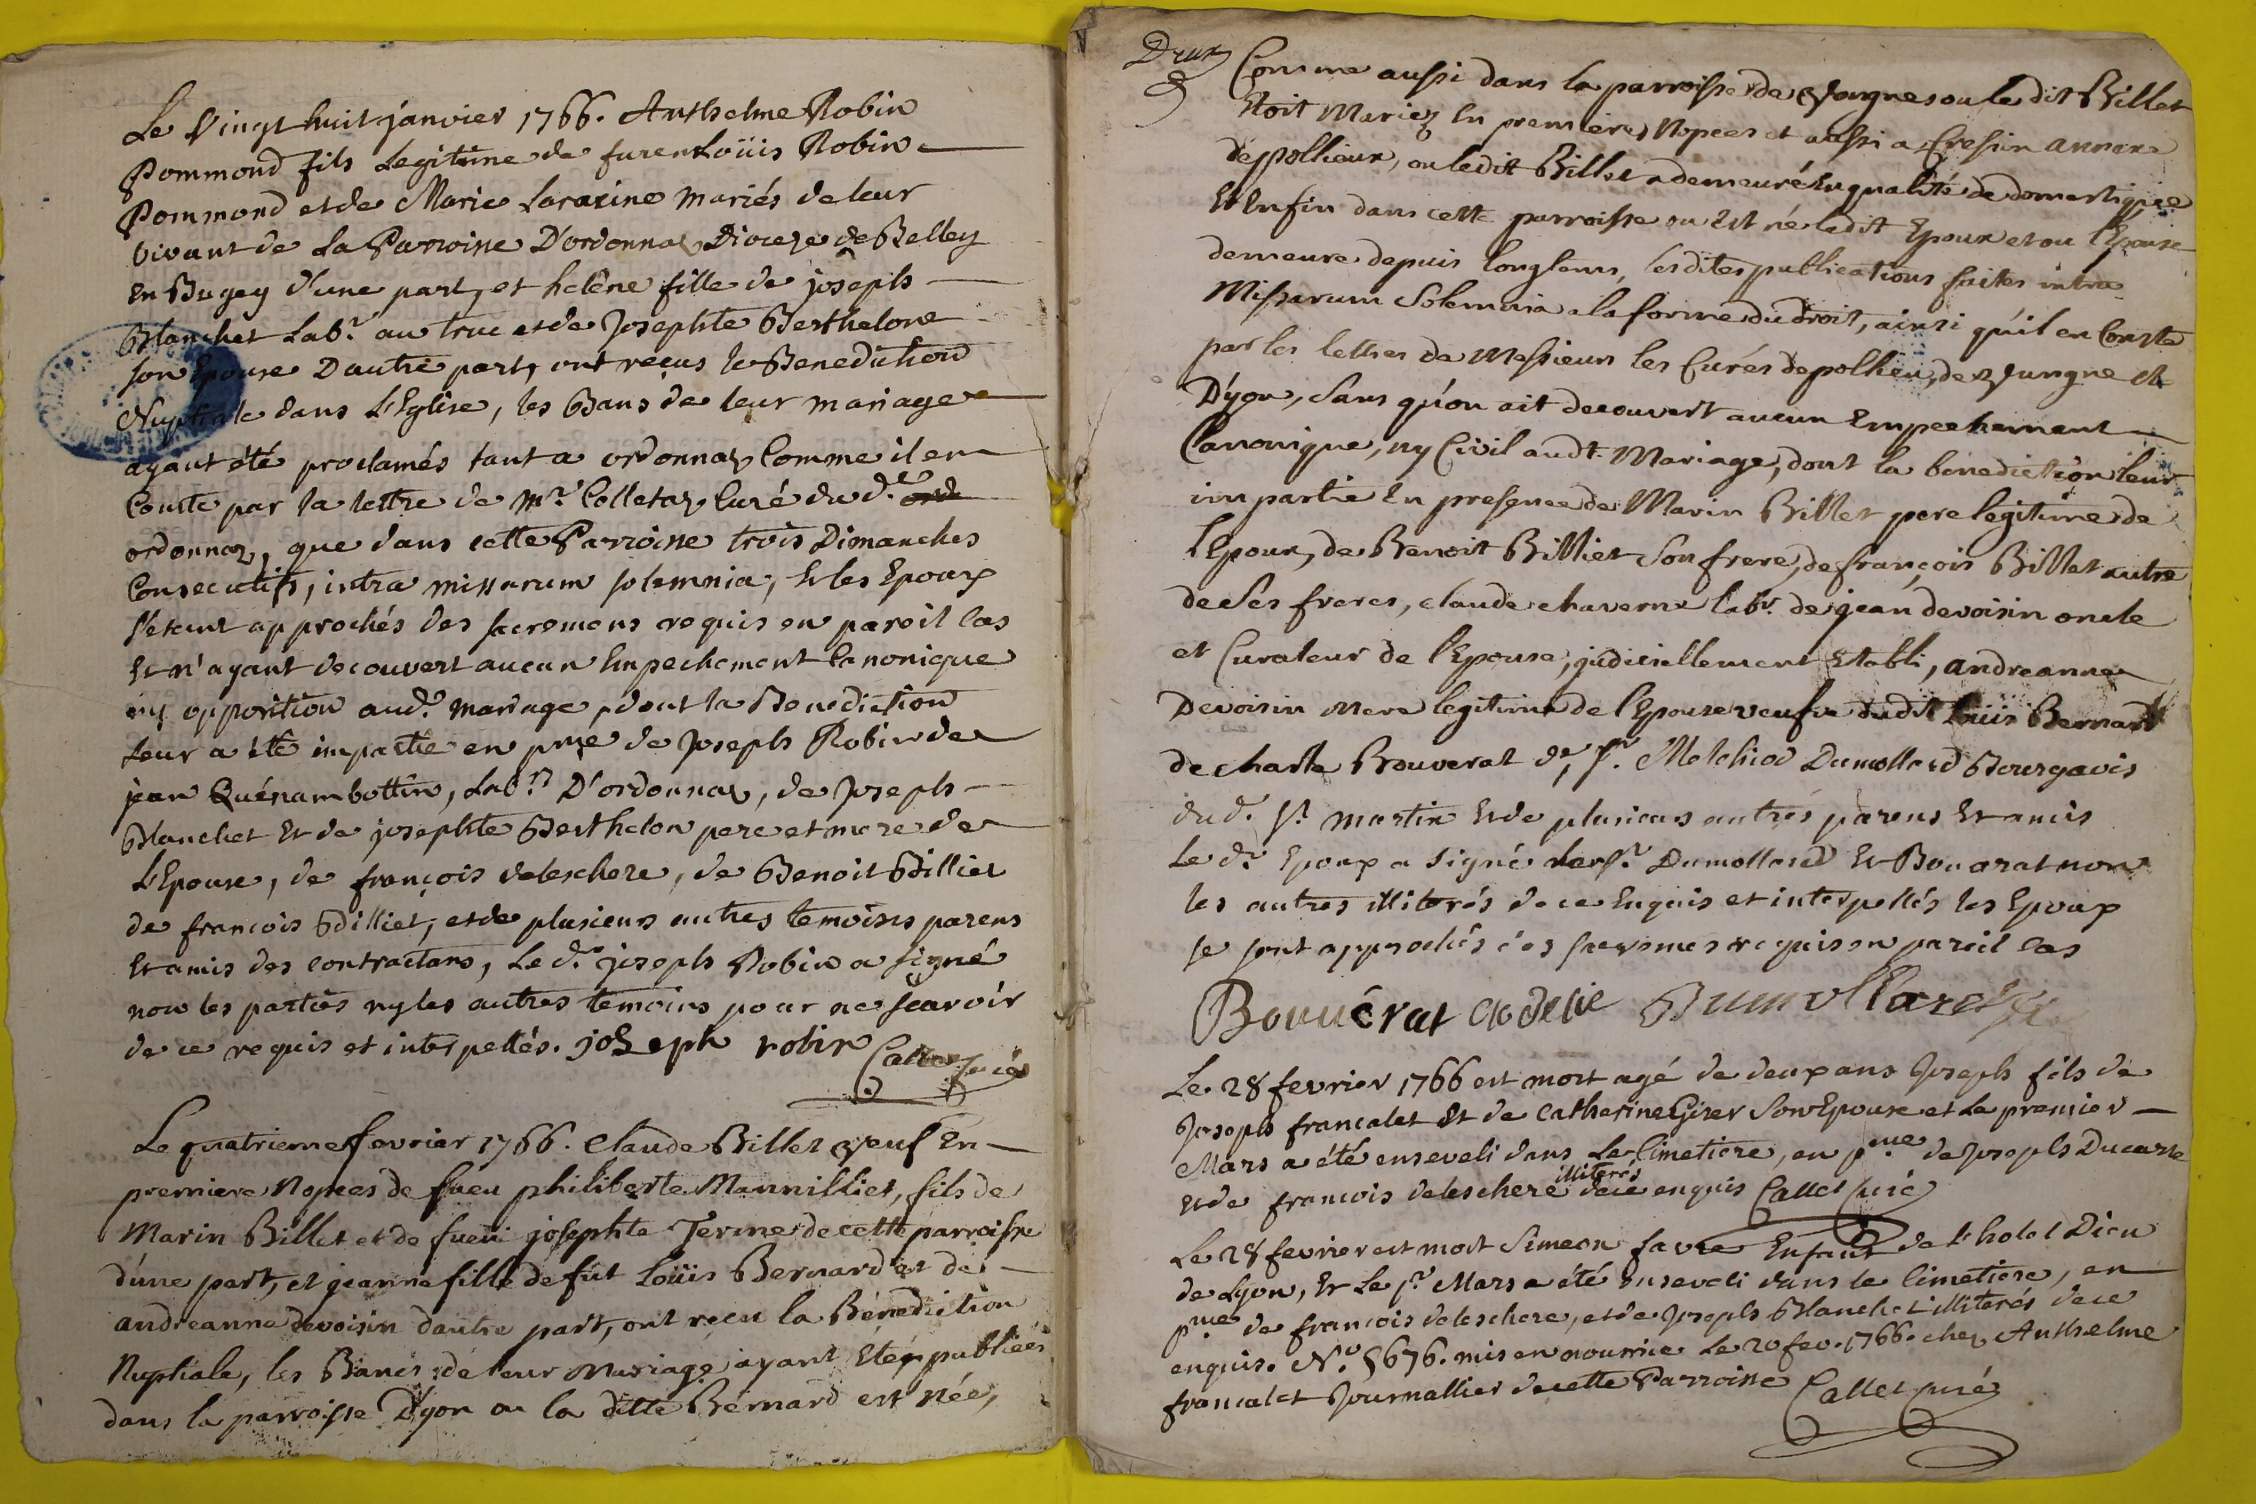 Le Vingt huit janvier 1766. Anthelme Robin
Pommond fils Legitime de furent Loüis Robin
Pommond et de Marie Laracine mariés de leur
vivant de La Parroisse D'ordonnaz Diocese de Belley
En Bugey d'une part, et helène fille de joseph
Blanchet Lab.r au truc et de Josephte Berthelone
son Epouse D'autre part, ont reçus la Benediction
Nuptiale dans L'Eglise, les Bans de leur mariage
ayant été proclamés tant a ordonnaz Comme il en
Conste par la lettre de M.r Colletaz Curé du d.t ord
ordonnaz, que dans cette Parroisse trois Dimanches
Consecutifs, intra missarum solemnia, Et les Epoux
s'etant approchés des sacremens requis en pareil cas
Et n'ayant decouvert aucun Empechement Canonique
ny opposition aud.t mariage, dont la Benediction
leur a été impartie en pnce de Joseph Robin de
jean Quénambottin, Lab.rs D'ordonnaz, de Joseph
Blanchet Et de josephte Berthelon pere et mere de
L'Epouse, de françois deleschere, de Benoit Billiet
de françois Billiet, et de plusieurs autres temoins parens
Et amis des contractans, Le d.t joseph Robin a signé
non les parties ny les autres temoins pour ne scavoir
de ce requis et interpellés. joseph robin
Callet Curé
Le quatrieme fevrier 1766. Claude Billet veuf En
premiere Nopces de fueu philiberte Mannilliet, fils de
Marin Billet et de fueu josephte Terme de cette parroisse
d'une part, et jeanne fille de fut Loüis Bernard et de
andreanne devoisin d'autre part, ont reçu la Bénédiction
Nuptiale, les Bancs de leur Mariage ayant Eté publiées
dans la parroisse D'yon ou la ditte Bernard est née,
Deux
Comme aussi dans la parroisse de vongnes ou le dit Billet
Etoit Mariez En premieres Nopces et aussi a Cressin annexe
de pollieux, ou ledit Billet a demeuré En qualité de domestique
Et Enfin dans cette parroisse ou Est né ledit Epoux et ou l'Epouse
demeure depuis longtems, lesdites publications faites intra
Missarum Solemnia a la forme du droit, ainsi qu'il en Conste
par les lettres de Messieurs les Curés de pollieu, de vongne et
D'yon, Sans qu'on ait decouvert aucun Empechement
Canonique, ny Civil audt. Mariage, dont la bénédiction leur
impartie En presence de Marin Billet pere legitime de
l'Epoux, de Benoit Billiet Son frere, de françois Billet autre
de Ses freres, claude chavenne labr. de jean devoisin oncle
et Curateur de l'Epouse, judiciellement Etabli, andreanne
Devoisin mere legitime de l'Epouse veufve dudit Loüis Bernard
de charle Bouverat de, Sr. Melchior Dumollard Bourgeois
du d. St. martin Et de plusieurs autres parens Et amis
Le d.t Epoux a signé Le Sr. Dumollard Et Bouverat non
les autres illiterés de ce Enquis et interpellés les Epoux
se sont approchés des sacremens requis en pareil cas
Bouvérat Dumollard
Le 28 fevrier 1766 est mort agé de deux ans Joseph fils de
Joseph francalet Et de Catherine Girer Son Epouse et Le premier
Mars a été enseveli dans Le Cimetiere, en p.nce de Joseph Ducarre
Et de francois deleschere illiterés de ce enquis Callet Curé
Le 28 fevrier est mort Simeon favre Enfant de L'hotel Dieu
de Lyon, Et Le pr. Mars a été Enseveli dans le Cimetiere, en
p.nce de francois deleschere, et de Joseph Blanchet illiterés de ce
enquis. N.o 5676. mis en nourrice Le 20 fev. 1766. chez Anthelme
francalet Journallier de cette Parroisse Callet Curé